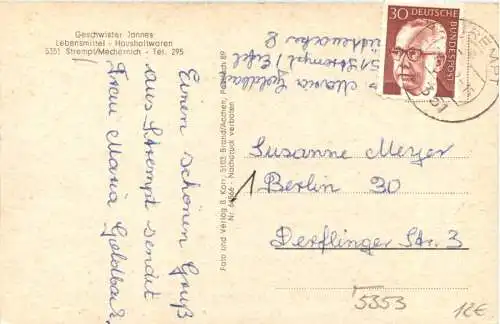 Geschwister Jannes
Lebensmittel - Haushaltwaren
5351 Strempt/Mechernich - Tel. 295
Maria Goldbau
51 Strempt / Eifel
30
DEUTSCHE
BUNDESPOST
5351
Einen schönen Gruß
aus Strempt sendet
Frau Maria Goldbau
Foto und Verlag B. Korr, 5103 Brand/Aachen, Postfach 89
Nachdruck verboten
Susanne Meyer
1 Berlin 30
Derflinger Str. 3
5353
12€